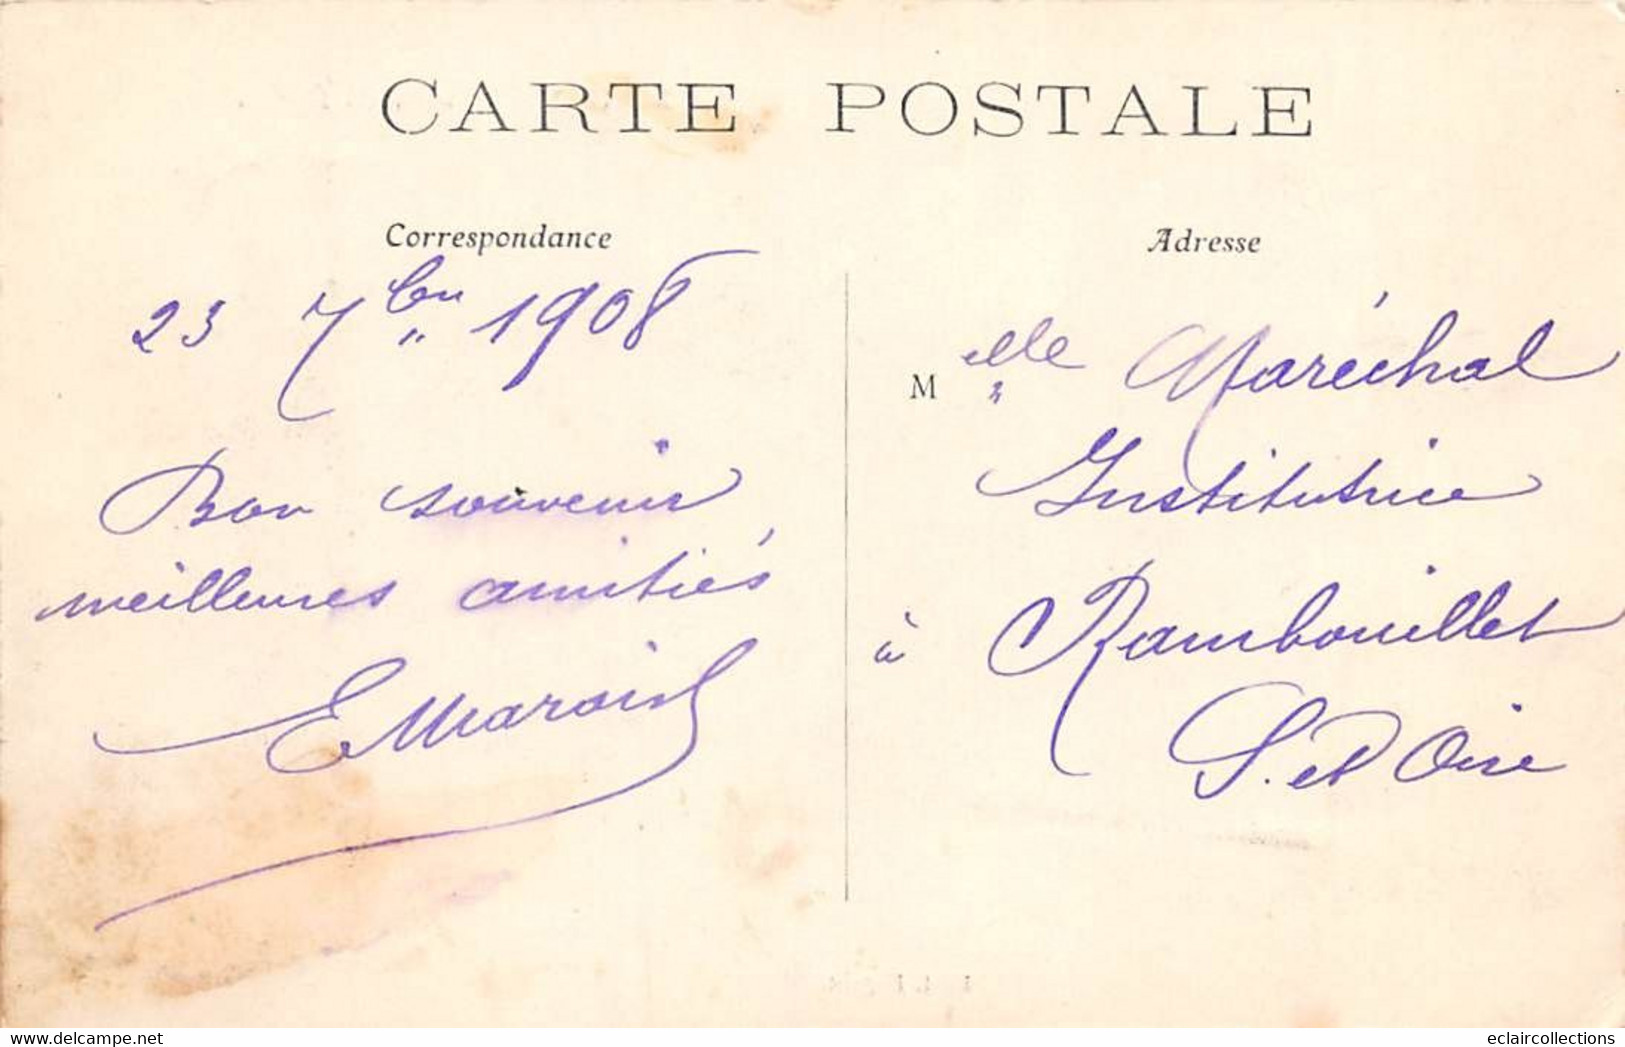 CARTE POSTALE
Correspondance
23 7bre 1908
Bon souvenir
meilleures amitiés
Adresse
Melle Maréchal
Institutrice
à Rambouillet
S. et Oise
eclaircollections